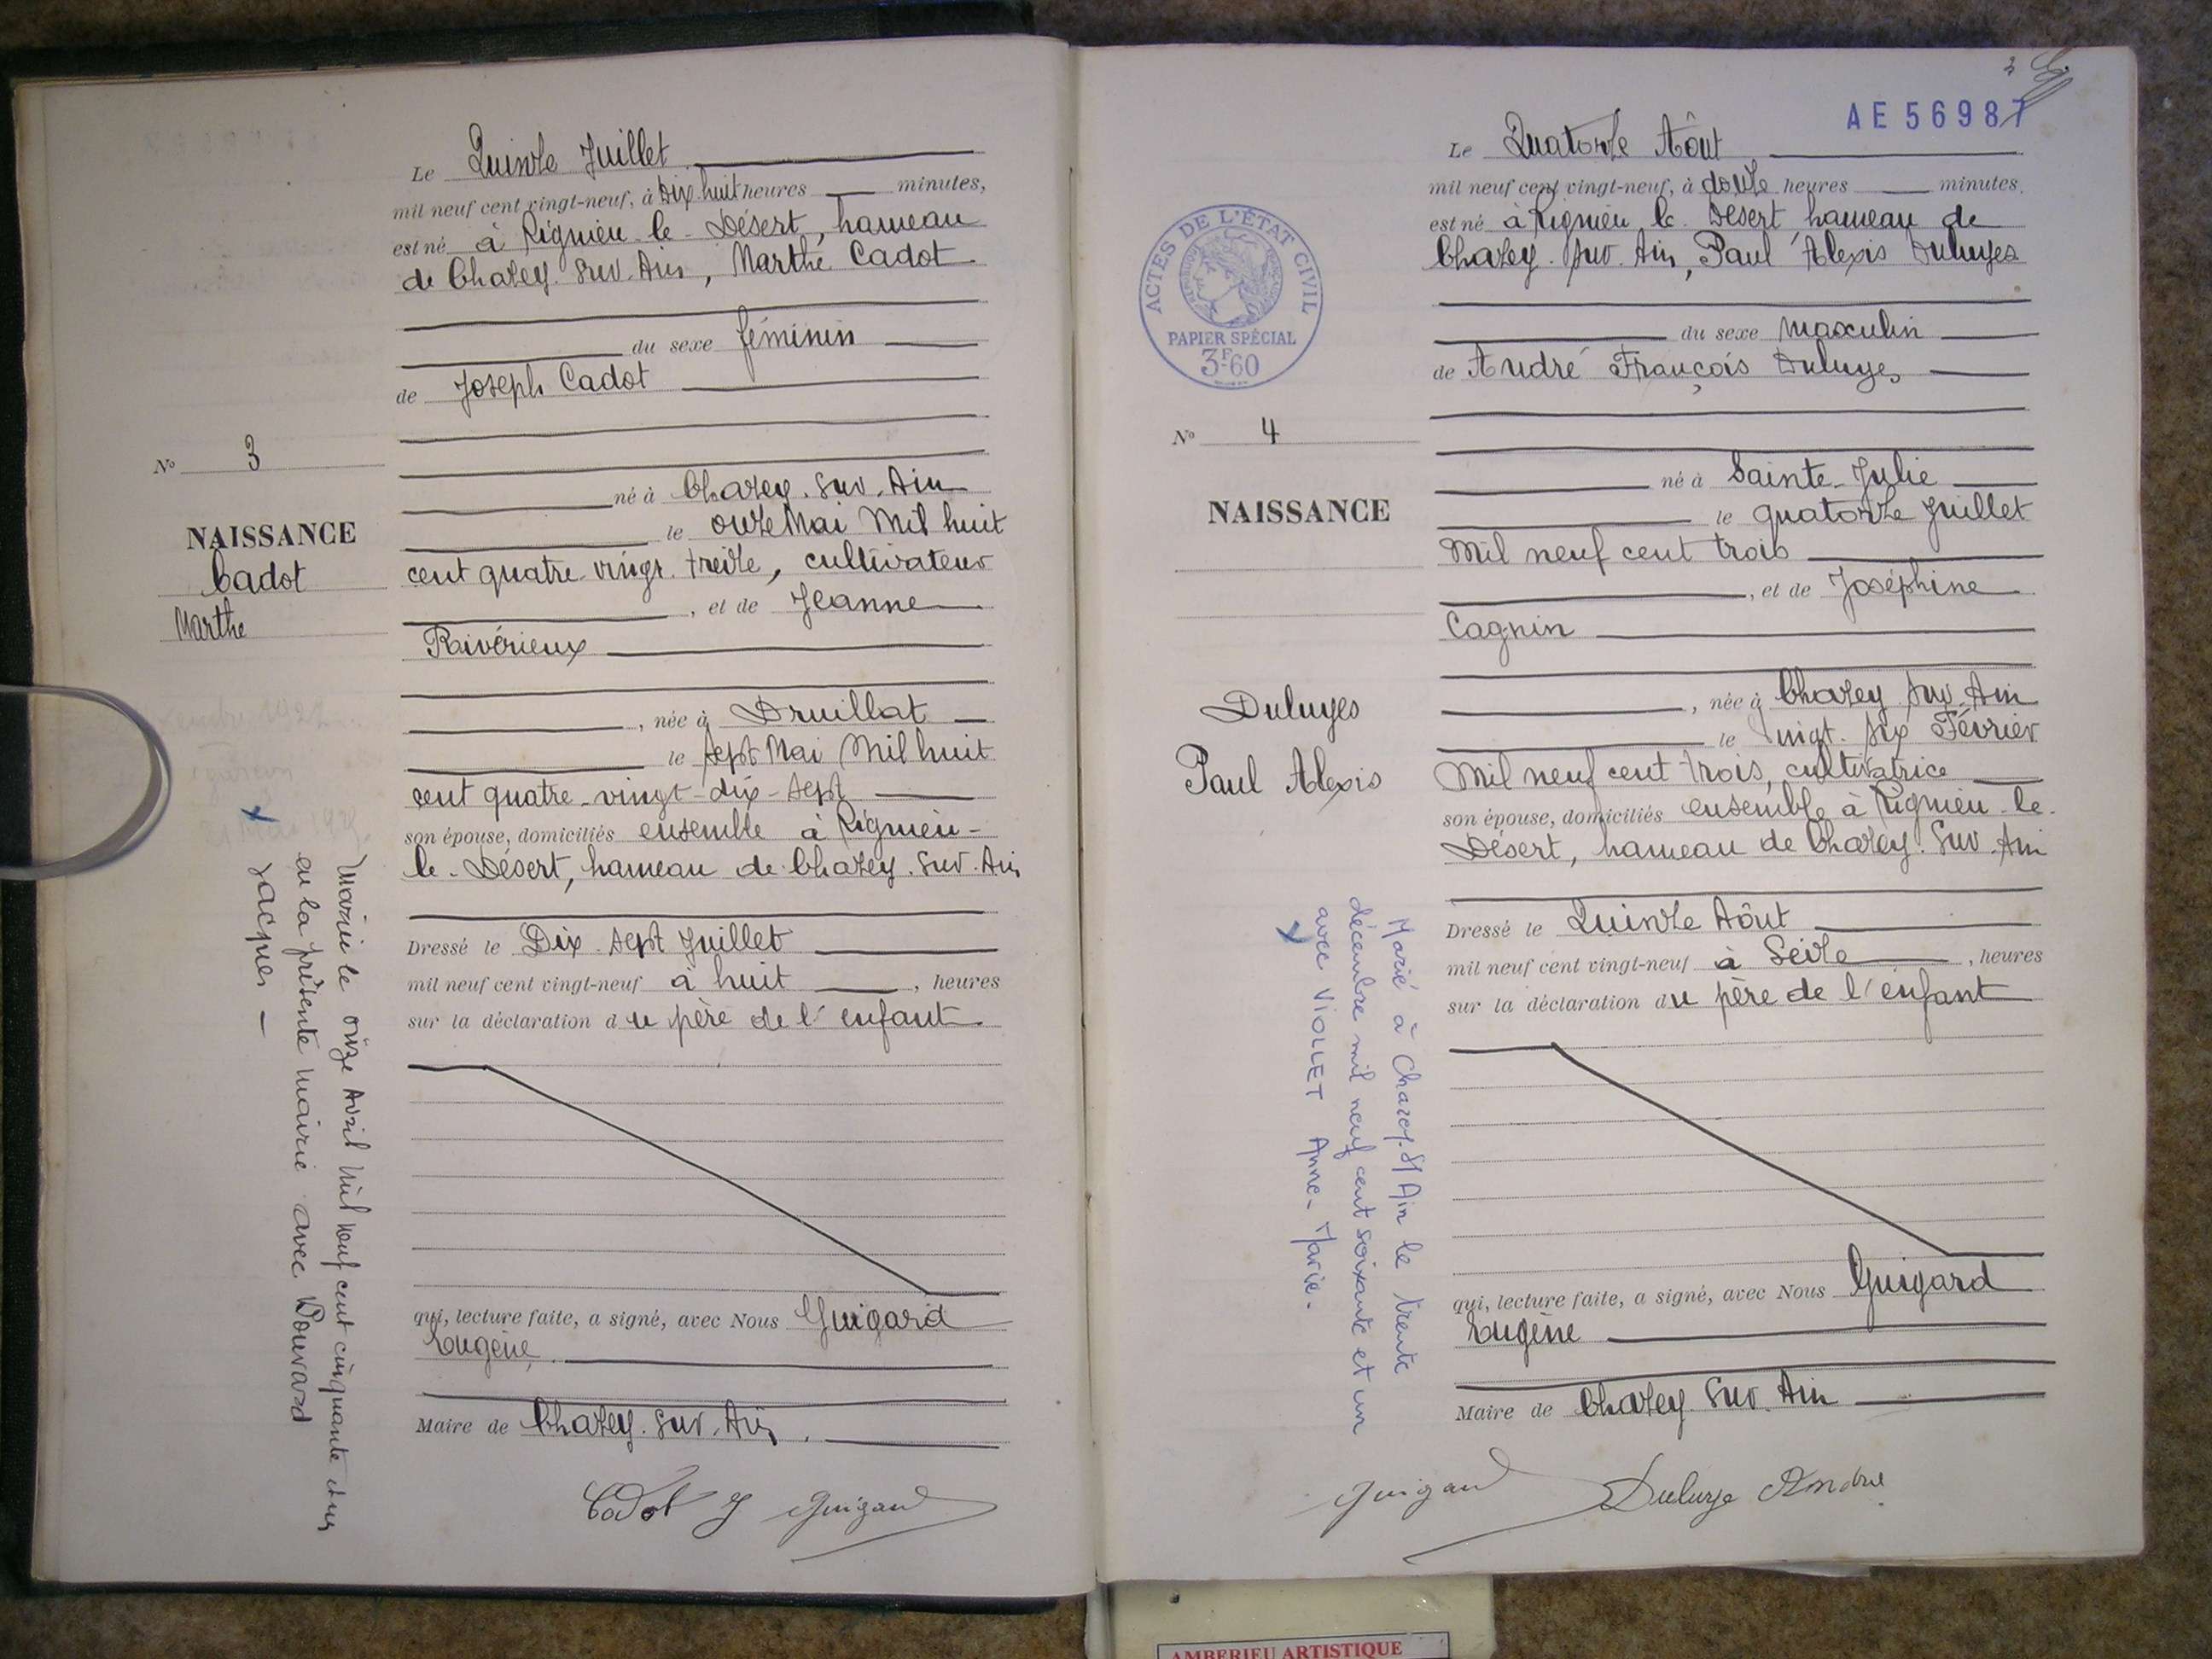 Le Quinze Juillet
mil neuf cent vingt-neuf, à Dix huit heures minutes,
est né à Rignieu-le-Désert, hameau
de Chazey-sur-Ain, Marthe Cadot
du sexe féminin
de Joseph Cadot
né à Chazey-sur-Ain
le onze Mai Mil huit
cent quatre-vingt-treize, cultivateur
, et de Jeanne
Raivérieux
, née à Druillat
le sept Mai Mil huit
cent quatre-vingt-dix-sept
son épouse, domiciliés ensemble à Rignieu-
le-Désert, hameau de Chazey-sur-Ain
Dressé le Dix-sept Juillet
mil neuf cent vingt-neuf à huit , heures
sur la déclaration du père de l'enfant
qui, lecture faite, a signé, avec Nous Guigard
Eugène
Maire de Chazey-sur-Ain.
Cadot J Guigard
No 3
NAISSANCE
Cadot
Marthe
Mariée le onze Avril Mil neuf cent cinquante
en la présente mairie avec Bouvard
Jacques -
AE 56987
ACTES DE L'ÉTAT CIVIL
RÉPUBLIQUE FRANÇAISE
PAPIER SPÉCIAL
3F-60
Le Quatorze Aôut
mil neuf cent vingt-neuf, à douze heures minutes,
est né à Rignieu-le-Désert hameau de
Chazey-sur-Ain, Paul Alexis Duluyes
du sexe masculin
de André François Duluyes
né à Sainte-Julie
le quatorze Juillet
Mil neuf cent trois
, et de Joséphine
Cagnin
, née à Chazey-sur-Ain
le Vingt-six Février
Mil neuf cent trois, cultivatrice
son épouse, domiciliés ensemble à Rignieu-le-
Désert, hameau de Chazey-sur-Ain
Dressé le Quinze Aôut
mil neuf cent vingt-neuf à Seize , heures
sur la déclaration du père de l'enfant
qui, lecture faite, a signé, avec Nous Guigard
Eugène
Maire de Chazey-sur-Ain
Guigard Duluye André
No 4
NAISSANCE
Duluyes
Paul Alexis
Marié à Chazey-S/Ain le trente
décembre mil neuf cent soixante et un
avec VIOLLET Anne-Marie-
AMBERIEU ARTISTIQUE